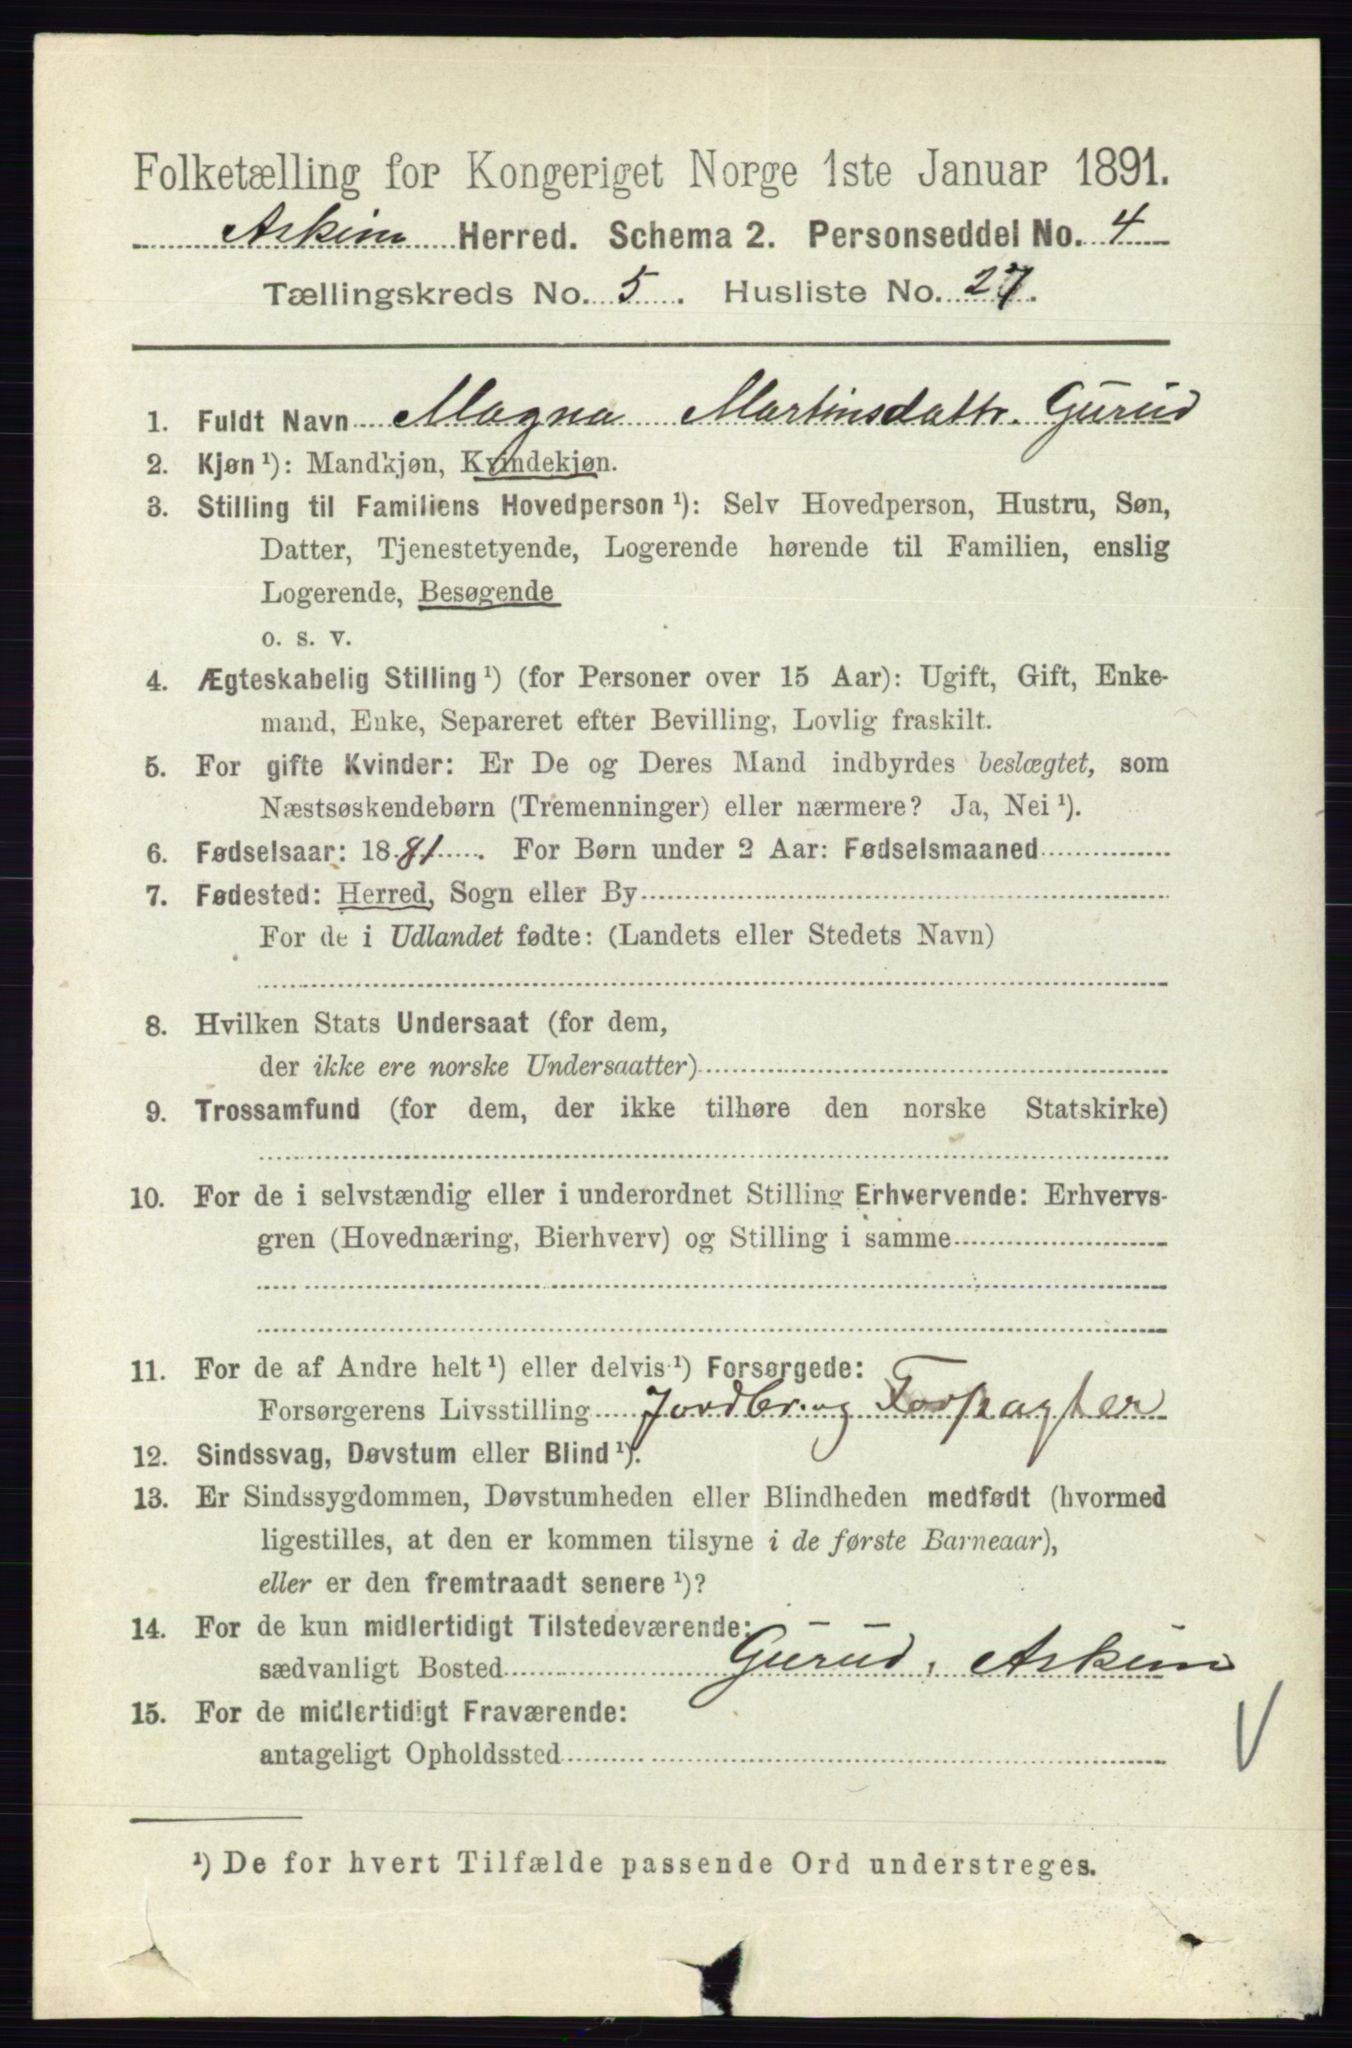 Folketælling for Kongeriget Norge 1ste Januar 1891.
Askim Herred. Schema 2. Personseddel No. 4
Tællingskreds No. 5. Husliste No. 27.
1. Fuldt Navn Magna Martinsdattr. Gurud
2. Kjøn ¹): Mandkjøn, Kvindekjøn.
3. Stilling til Familiens Hovedperson ¹): Selv Hovedperson, Hustru, Søn,
Datter, Tjenestetyende, Logerende hørende til Familien, enslig
Logerende, Besøgende
o. s. v.
4. Ægteskabelig Stilling ¹) (for Personer over 15 Aar): Ugift, Gift, Enke-
mand, Enke, Separeret efter Bevilling, Lovlig fraskilt.
5. For gifte Kvinder: Er De og Deres Mand indbyrdes beslægtet, som
Næstsøskendebørn (Tremenninger) eller nærmere? Ja, Nei ¹).
6. Fødselsaar: 1881. For Børn under 2 Aar: Fødselsmaaned
7. Fødested: Herred, Sogn eller By
For de i Udlandet fødte: (Landets eller Stedets Navn)
8. Hvilken Stats Undersaat (for dem,
der ikke ere norske Undersaatter)
9. Trossamfund (for dem, der ikke tilhøre den norske Statskirke)
10. For de i selvstændig eller i underordnet Stilling Erhvervende: Erhvervs-
gren (Hovednæring, Bierhverv) og Stilling i samme
11. For de af Andre helt ¹) eller delvis ¹) Forsørgede:
Forsørgerens Livsstilling Jordbr. og Forpagter
12. Sindssvag, Døvstum eller Blind ¹).
13. Er Sindssygdommen, Døvstumheden eller Blindheden medfødt (hvormed
ligestilles, at den er kommen tilsyne i de første Barneaar),
eller er den fremtraadt senere ¹)?
14. For de kun midlertidigt Tilstedeværende:
sædvanligt Bosted Gurud, Askim
15. For de midlertidigt Fraværende:
antageligt Opholdssted
¹) De for hvert Tilfælde passende Ord understreges.